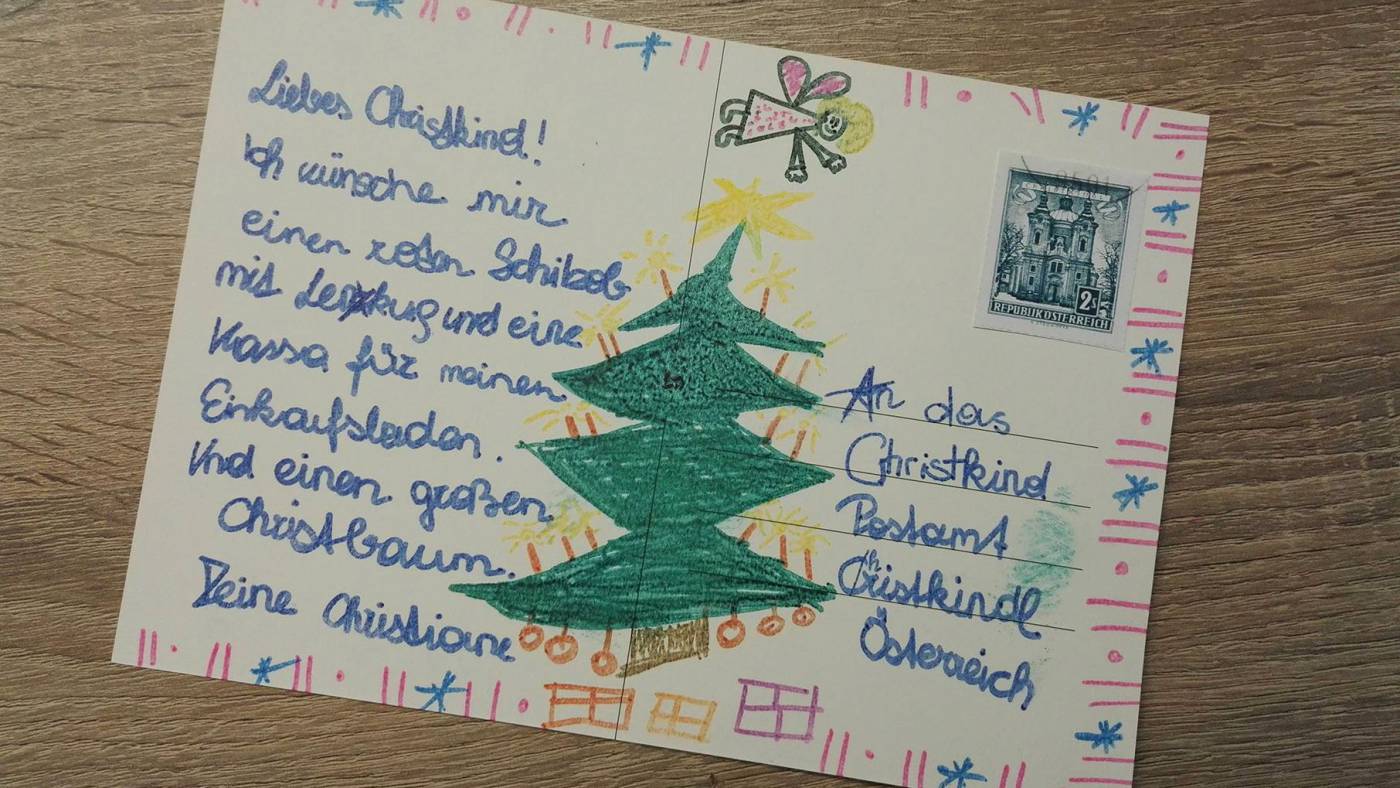 Liebes Christkind!
Ich wünsche mir
einen roten Schibob
mit Lenkug und eine
Kassa für meinen
Einkaufsladen.
Und einen großen
Christbaum.
Deine Christiane
2s
REPUBLIK ÖSTERREICH
An das
Christkind
Postamt
Christkindl
Österreich